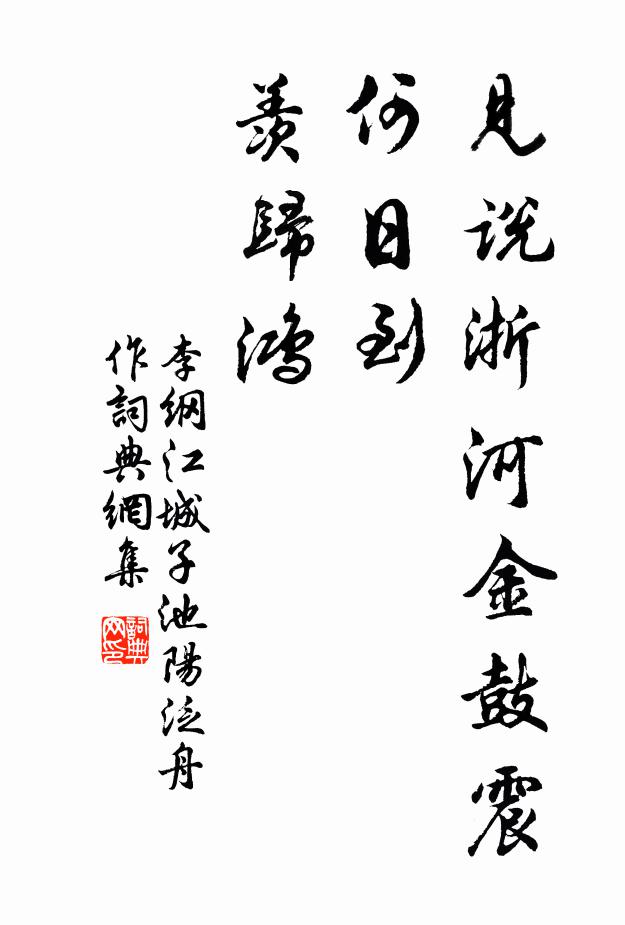 見説浙河金鼓震
何日到
羨歸鴻
李綱江城子池陽泛舟
作詞典網集
詞典
网印